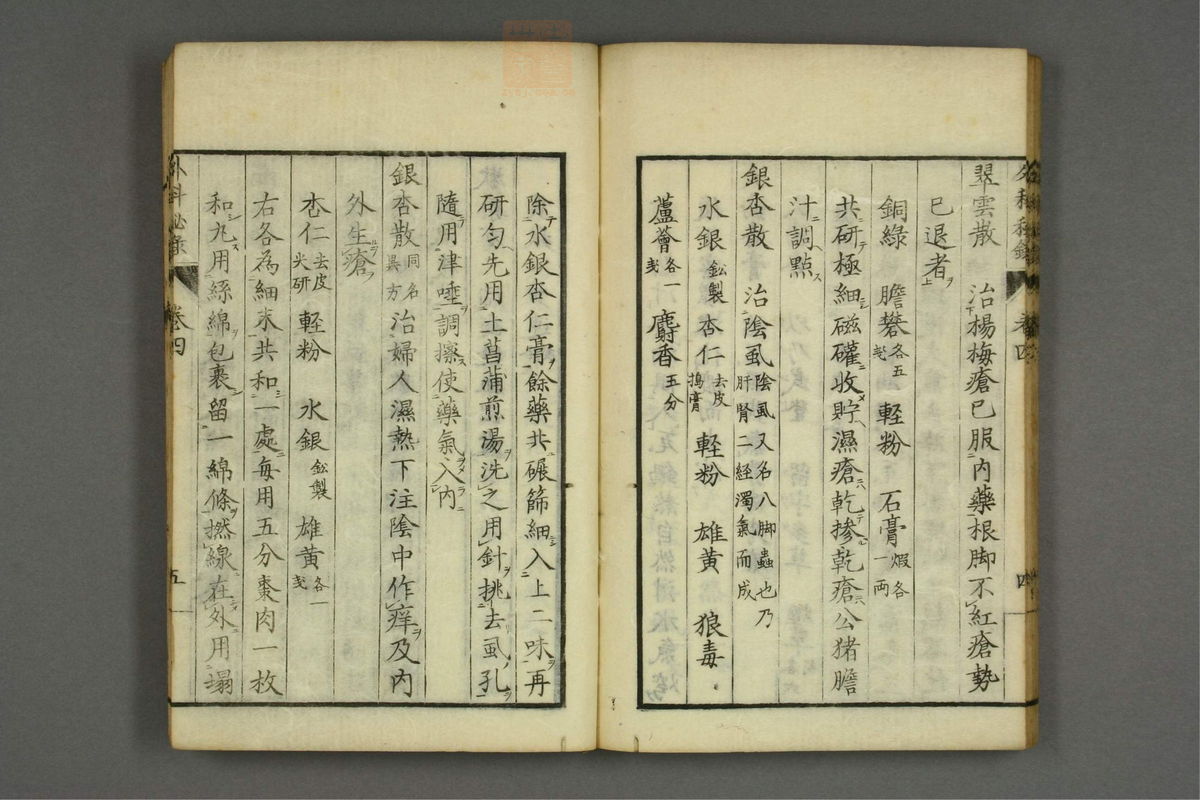 翠雲散 治楊梅瘡已服内藥根脚不紅瘡勢
已退者
銅緑 膽礬各五戔 軽粉 石膏煆各一両
共研極細磁礶收貯濕瘡乾摻乾瘡公猪膽
汁調點
銀杏散 治陰虱陰虱又名八脚蟲也乃肝腎二経濁氣而成
水銀鈆製 杏仁去皮搗膏 軽粉 雄黄 狼毒
蘆薈各一戔 麝香五分
除水銀杏仁膏餘藥共碾篩細入上二味再
研匀先用土菖蒲煎湯洗之用針挑去虱孔
隨用津唾調擦使藥氣入内
銀杏散同名異方 治婦人濕熱下注陰中作痒及内
外生瘡
杏仁去皮尖研 軽粉 水銀鈆製 雄黄各一戔
右各為細末共和一處每用五分棗肉一枚
和丸用絲綿包裹留一綿條撚線在外用塌
外科秘録 卷四 五